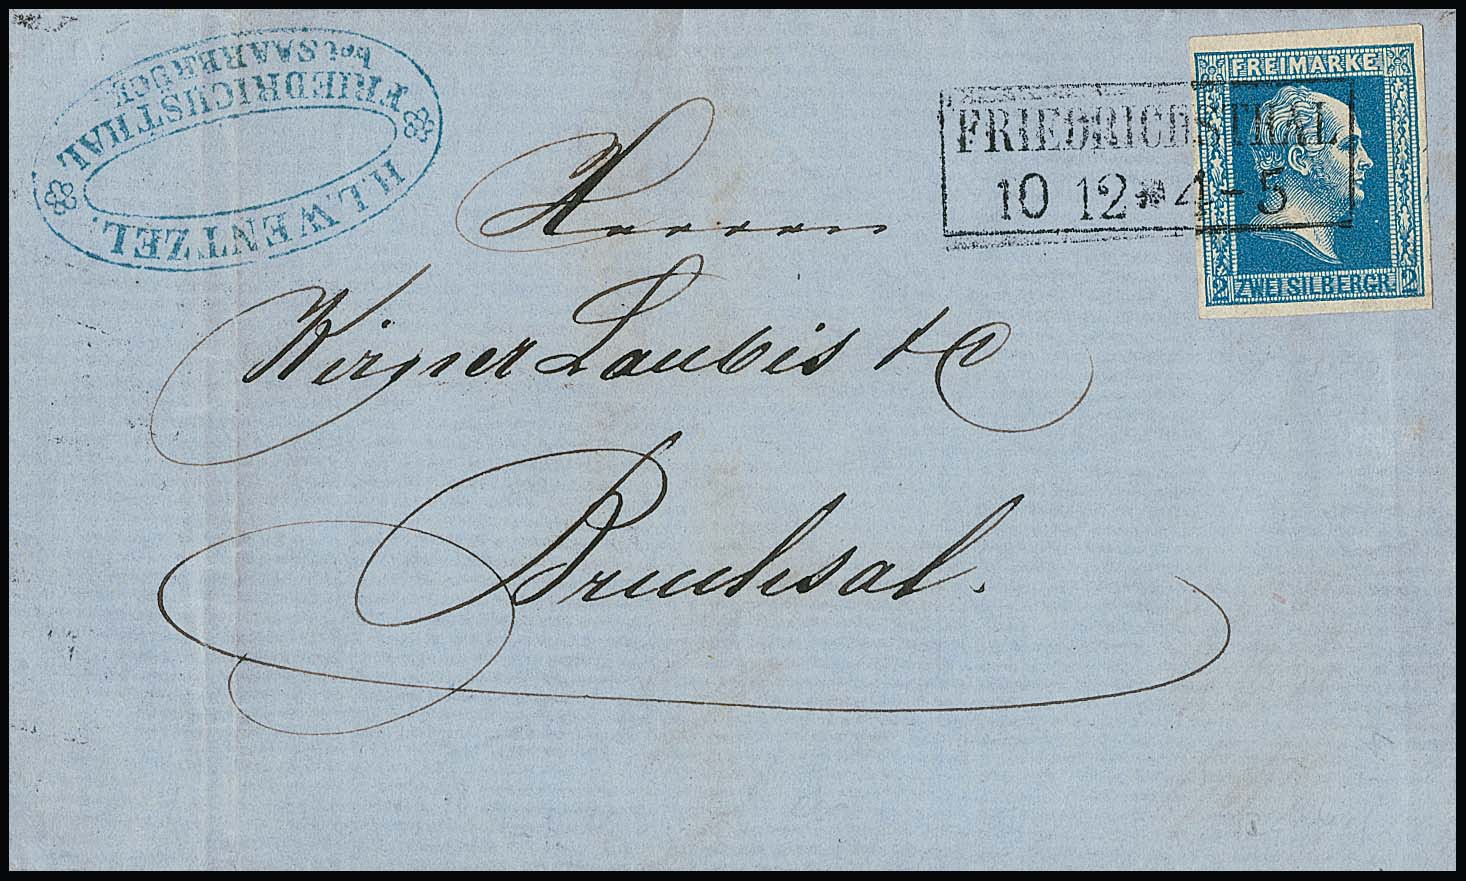 H. L. WENTZEL.
FRIEDRICHSTHAL
bei SAARBRÜCK
FREIMARKE
2 ZWEI SILBERGR. 2
FRIEDRICHSTHAL
10 12 * 4-5
Herren
Laubis & C
Bruchsal.